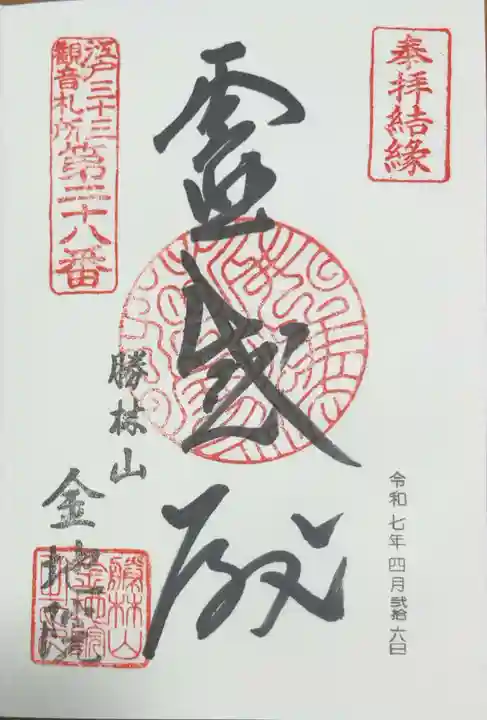 奉拝結緣
令和七年四月弐拾六日
霊感殿
江戸三十三
観音札所第二十八番
勝林山
金地院
勝林山
金地院